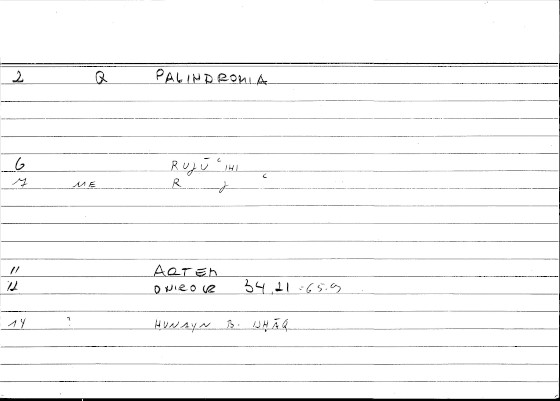 2 Q PALINDROMIA
6 RUJŪʿ IHI
7 ME R J ʿ
11 ARTEM
12 ONEIROK 34,21 = 65.9
14 ? HUNAYN B. ISHĀQ